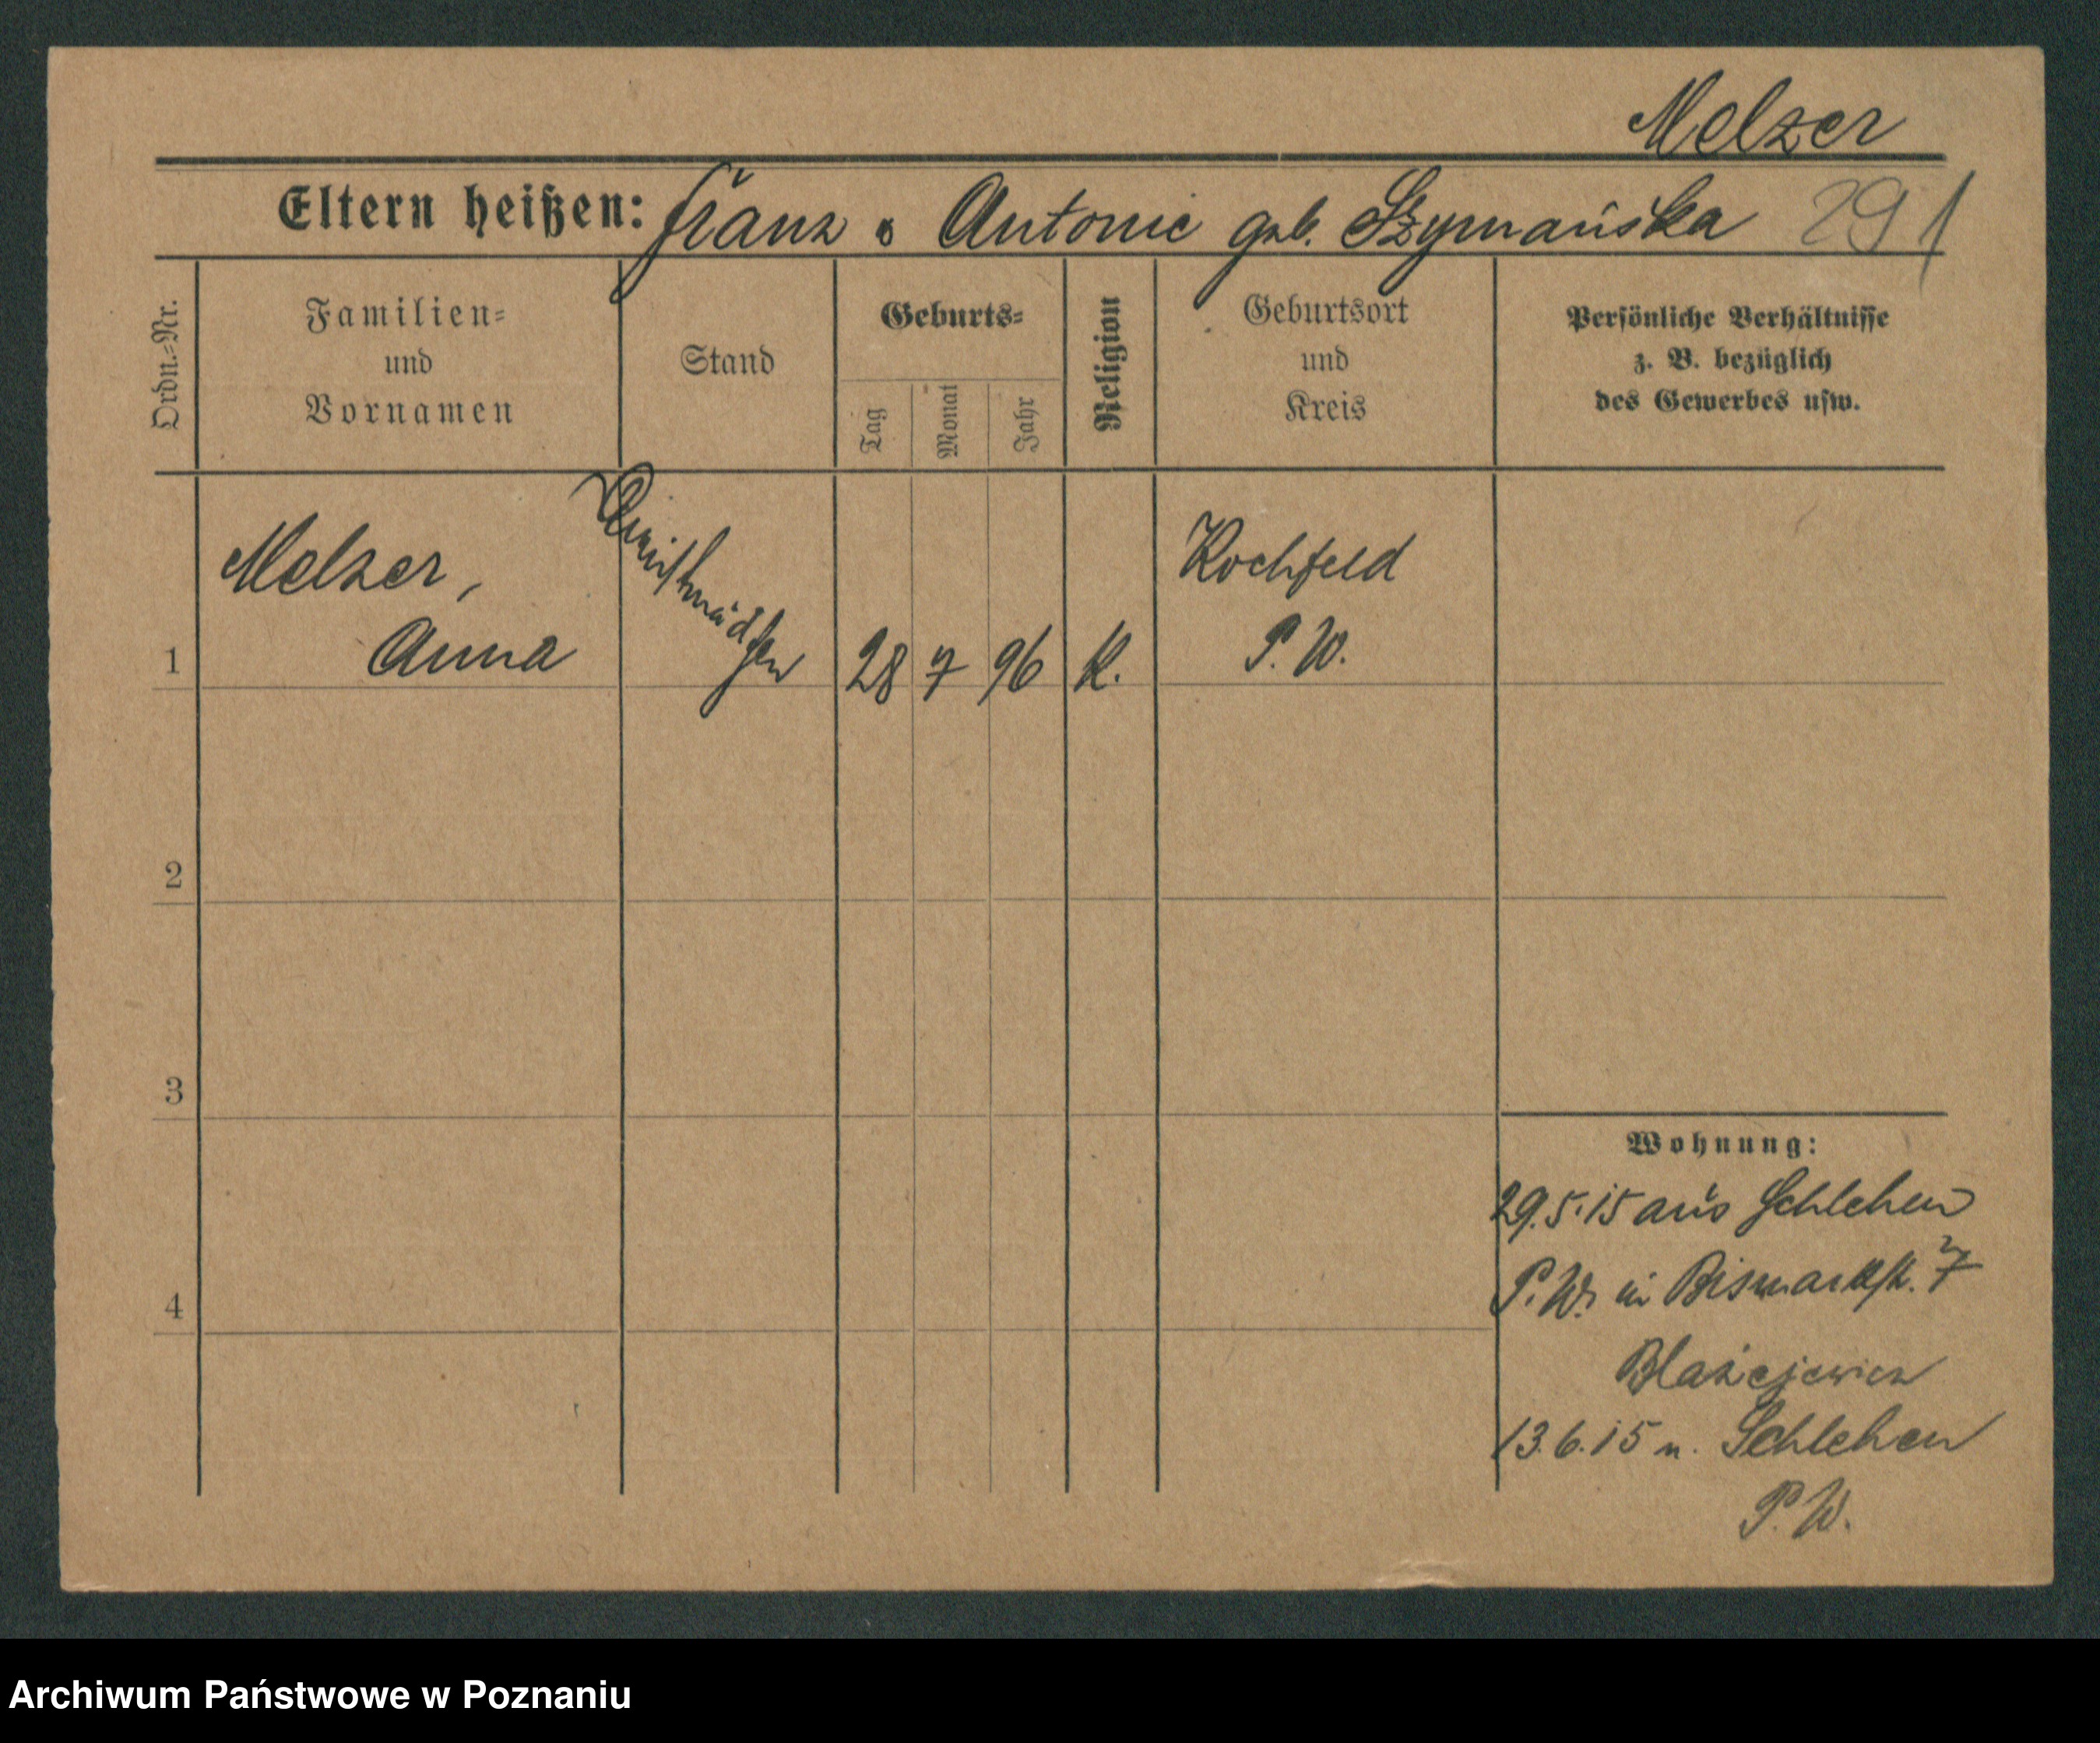 Melzer
Eltern heißen: Franz u Antonie geb. Szymańska 291
Ordn.-Nr.
Familien-
und
Vornamen
Stand
Geburts-
Tag
Monat
Jahr
Religion
Geburtsort
und
Kreis
Persönliche Verhältnisse
z. B. bezüglich
des Gewerbes usw.
Melzer,
Dienstmädchen
Kochfeld
1 Anna 28 7 96 K. P. W.
2
3
Wohnung:
29.5.15 aus Schlehen
P. W. in Bismarkstr. 7
4
Blazejewicz
13.6.15 n. Schlehen
P. W.
Archiwum Państwowe w Poznaniu